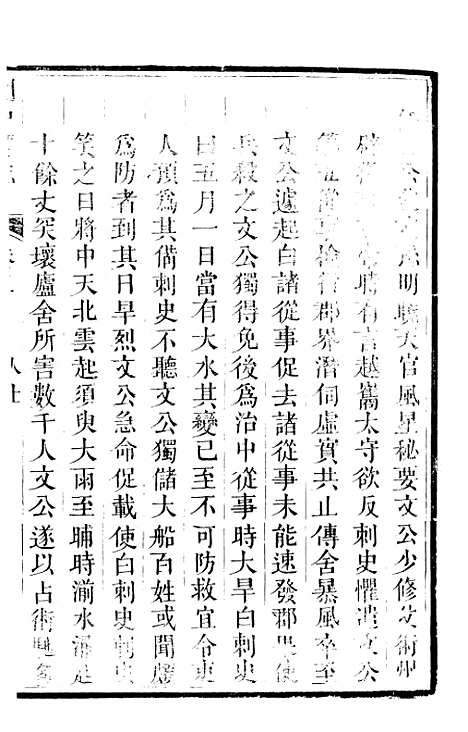 明曉天官風星秘要文公少修父術州
時有言越嶲太守欲反刺史懼遣文公
行郡界潛伺虛實共止傳舍暴風卒至
文公遽起白諸從事促去諸從事未能速發郡果使
兵殺之文公獨得免後爲治中從事時大旱白刺史
曰五月一日當有大水其變已至不可防救宜令吏
人預爲其備刺史不聽文公獨儲大船百姓或聞頗
爲防者到其日旱烈文公急命促載使白刺史刺史
笑之日將中天北雲起須臾大雨至晡時湔水涌起
十餘丈突壞廬舍所害數千人文公遂以占術馳名